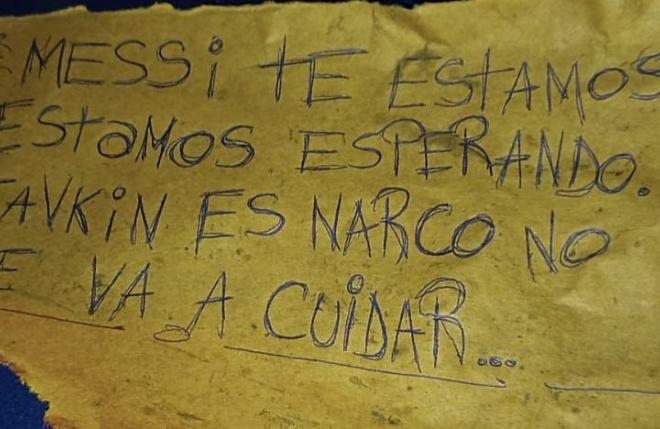 MESSi tE EStAMOS
EStaMOS ESPERANDO.
AVKiN ES NARCO NO
E VA A CUiDAR...